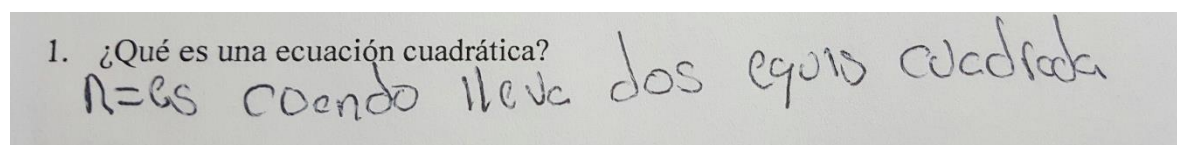 1. ¿Qué es una ecuación cuadrática?
R=es coendo lleva dos equis cuadrada